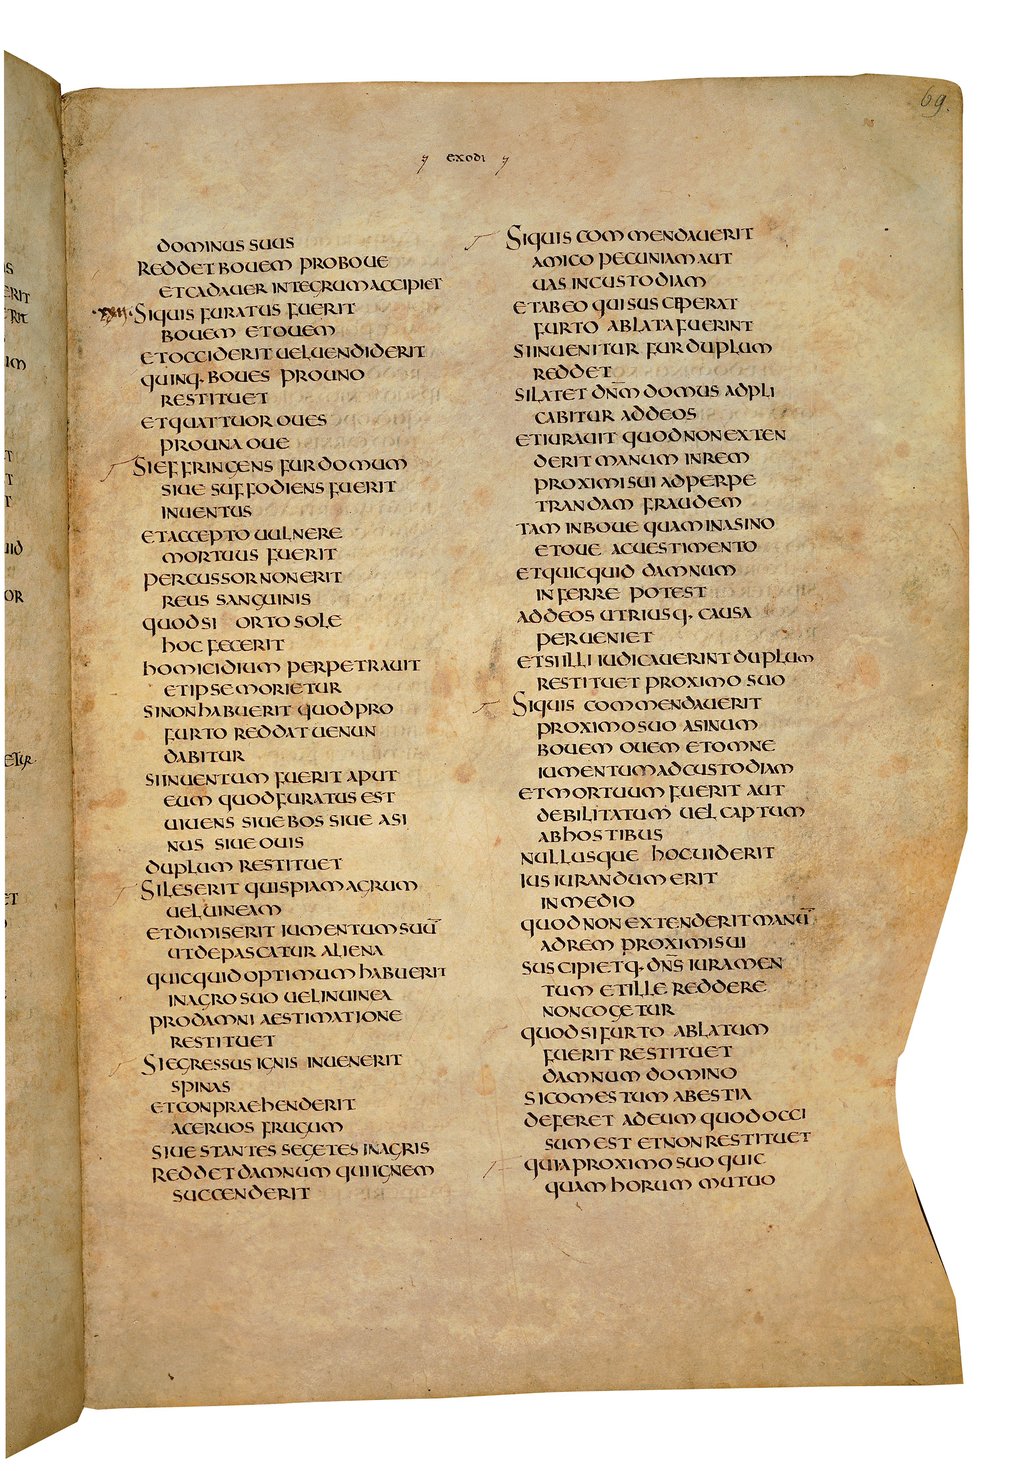 69.
exodi
dominus suus
Reddet bouem pro boue
et cadauer integrum accipiet
·xxII· Siquis furatus fuerit
bouem et ouem
et occiderit uel uendiderit
quinq· boues pro uno
restituet
et quattuor oues
pro una oue
Si effringens fur domum
siue suffodiens fuerit
inuentus
et accepto uulnere
mortuus fuerit
percussor non erit
reus sanguinis
quod si orto sole
hoc fecerit
homicidium perpetrauit
et ipse morietur
si non habuerit quod pro
furto reddat uenun
dabitur
si inuentum fuerit aput
eum quod furatus est
uiuens siue bos siue asi
nus siue ouis
duplum restituet
Si leserit quispiam agrum
uel uineam
et dimiserit iumentum suū
ut depascatur aliena
quicquid optimum habuerit
in agro suo uel in uinea
pro damni aestimatione
restituet
Si egressus ignis inuenerit
spinas
et conpraehenderit
aceruos frugum
siue stantes segetes in agris
reddet damnum qui ignem
succenderit
Siquis commendauerit
amico pecuniam aut
uas in custodiam
et ab eo qui susceperat
furto ablata fuerint
si inuenitur fur duplum
reddet
si latet dn̄m domus adpli
cabitur ad deos
et iurauit quod non exten
derit manum in rem
proximi sui ad perpe
trandam fraudem
tam in boue quam in asino
et oue ac uestimento
et quicquid damnum
inferre potest
ad deos utriusq· causa
perueniet
et si illi iudicauerint duplum
restituet proximo suo
Siquis commendauerit
proximo suo asinum
bouem ouem et omne
iumentum ad custodiam
et mortuum fuerit aut
debilitatum uel captum
ab hostibus
nullusque hoc uiderit
ius iurandum erit
in medio
quod non extenderit manū
ad rem proximi sui
suscipietq· dn̄s iuramen
tum et ille reddere
non cogetur
quod si furto ablatum
fuerit restituet
damnum domino
si comestum a bestia
deferet ad eum quod occi
sum est et non restituet
qui a proximo suo quic
quam horum mutuo